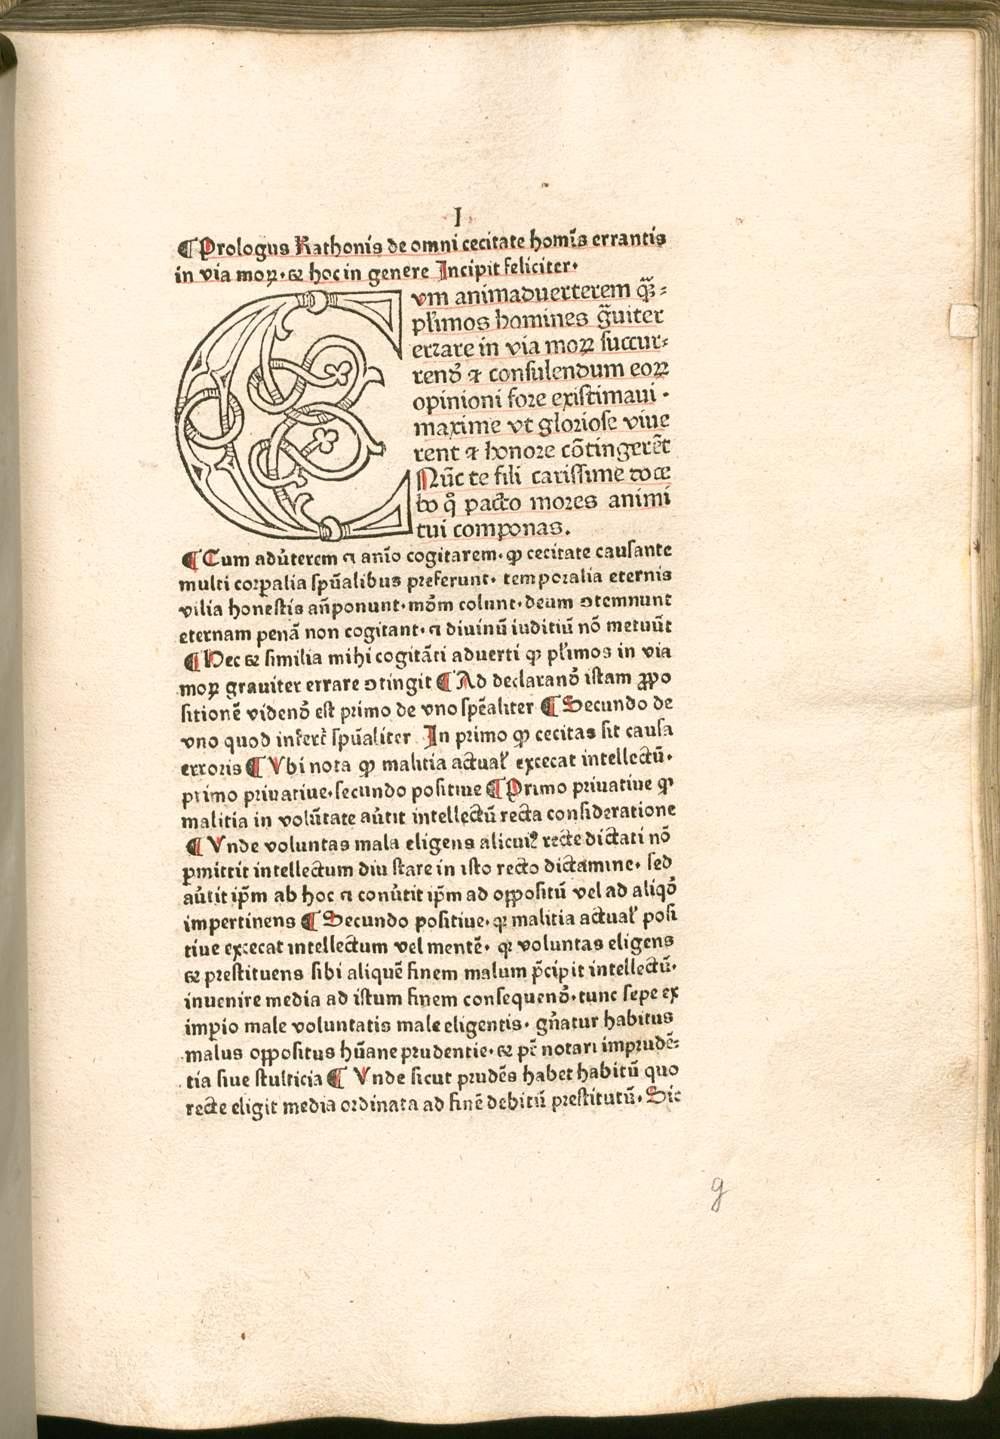 I
¶ Prologus Kathonis de omni cecitate homīs errantis
in via moꝝ. ⁊ hoc in genere Incipit feliciter.
Cvm animaduerterem q̄ꝫ⸗
pl'imos homines g̃uiter
errare in via moꝝ succur⸗
rendꝰ ⁊ consulendum eoꝝ
opinioni fore existimaui .
maxime vt gloriose viue
rent ⁊ honore cōtingerēt
Nūc te fili carissime doce
bo qͦ pacto mores animi
tui componas.
¶ Cum adu'terem ⁊ anīo cogitarem. ꝙ cecitate causante
multi corꝑalia sp̄ualibus preferunt. temporalia eternis
vilia honestis an̄ponunt. mōm colunt. deum ꝯtemnunt
eternam penā non cogitant. ⁊ diuinū iuditiū nō metuūt
¶ Hec ⁊ similia mihi cogitāti aduerti ꝙ pl'imos in via
moꝝ grauiter errare ꝯtingit ¶ Ad declarandꝰ istam ꝓpo
sitionē videndꝰ est primo de vno spēaliter ¶ Secundo de
vno quod infert' sp̄ualiter In primo ꝙ cecitas sit causa
erroris ¶ Vbi nota ꝙ malitia actual' excecat intellectū.
primo priuatiue. secundo positiue ¶ Primo priuatiue ꝙ
malitia in volūtate au'tit intellectū recta consideratione
¶ Vnde voluntas mala eligens alicuiꝰ recte dictati nō
ꝑmittit intellectum diu stare in isto recto dictamine. sed
au'tit ip̄m ab hoc ⁊ conu'tit ip̄m ad oppositū vel ad aliqō
impertinens ¶ Secundo positiue. qꝛ malitia actual' posi
tiue excecat intellectum vel mentē. qꝛ voluntas eligens
⁊ prestituens sibi aliquē finem malum p̄cipit intellectū.
inuenire media ad istum finem consequendꝰ. tunc sepe ex
imꝑio male voluntatis male eligentis. gn̄atur habitus
malus oppositus hūane prudentie. ⁊ pt̄ notari imprudē⸗
tia siue stulticia ¶ Vnde sicut prudēs habet habitū quo
recte eligit media ordinata ad finē debitū prestitutū. Sic
g